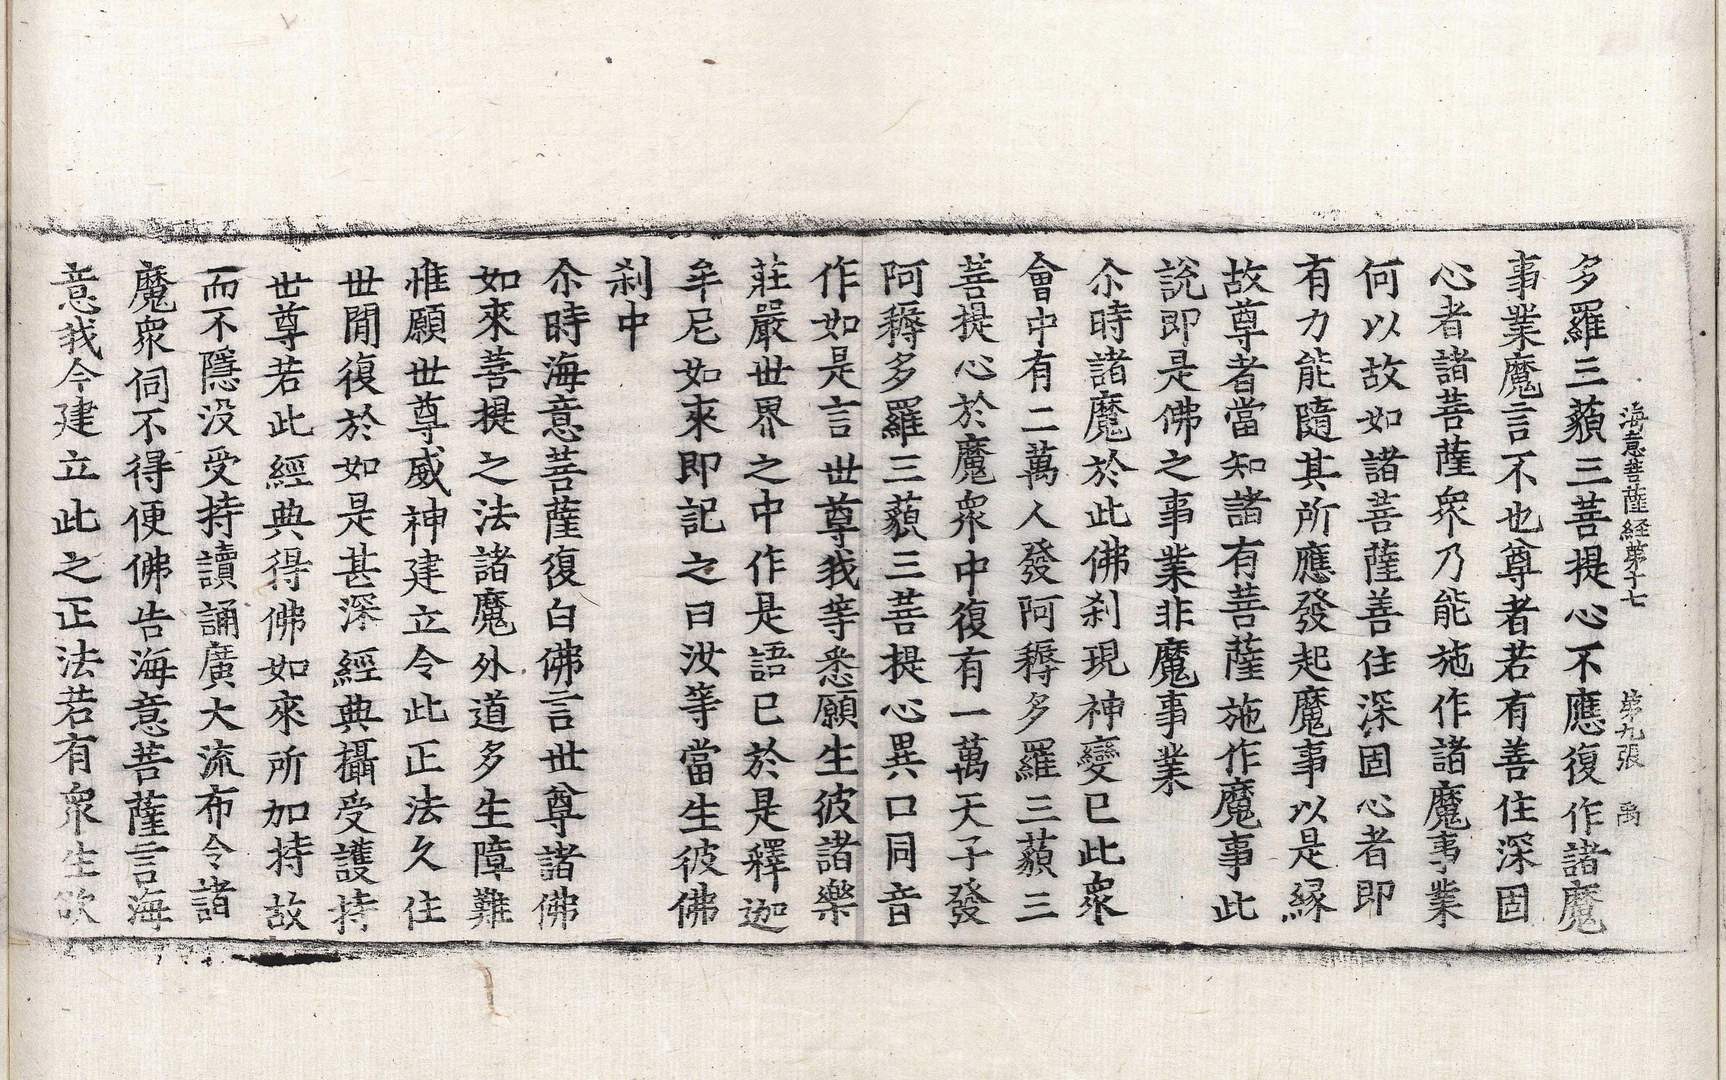 海意菩薩経第十七 第九張 禹
多羅三藐三菩提心不應復作諸魔
事業魔言不也尊者若有善住深固
心者諸菩薩衆乃能施作諸魔事業
何以故如諸菩薩善住深固心者即
有力能隨其所應發起魔事以是縁
故尊者當知諸有菩薩施作魔事此
說即是佛之事業非魔事業
尒時諸魔於此佛刹現神變已此衆
會中有二萬人發阿耨多羅三藐三
菩提心於魔衆中復有一萬天子發
阿耨多羅三藐三菩提心異口同音
作如是言世尊我等悉願生彼諸樂
莊嚴世界之中作是語已於是釋迦
牟尼如來即記之曰汝等當生彼佛
刹中
尒時海意菩薩復白佛言世尊諸佛
如來菩提之法諸魔外道多生障難
惟願世尊威神建立令此正法久住
世間復於如是甚深經典攝受護持
世尊若此經典得佛如來所加持故
而不隱没受持讀誦廣大流布令諸
魔衆伺不得便佛告海意菩薩言海
意我今建立此之正法若有衆生欲